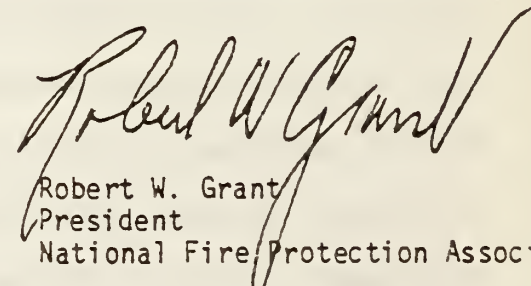 Robert W Grant
Robert W. Grant
President
National Fire Protection Associ